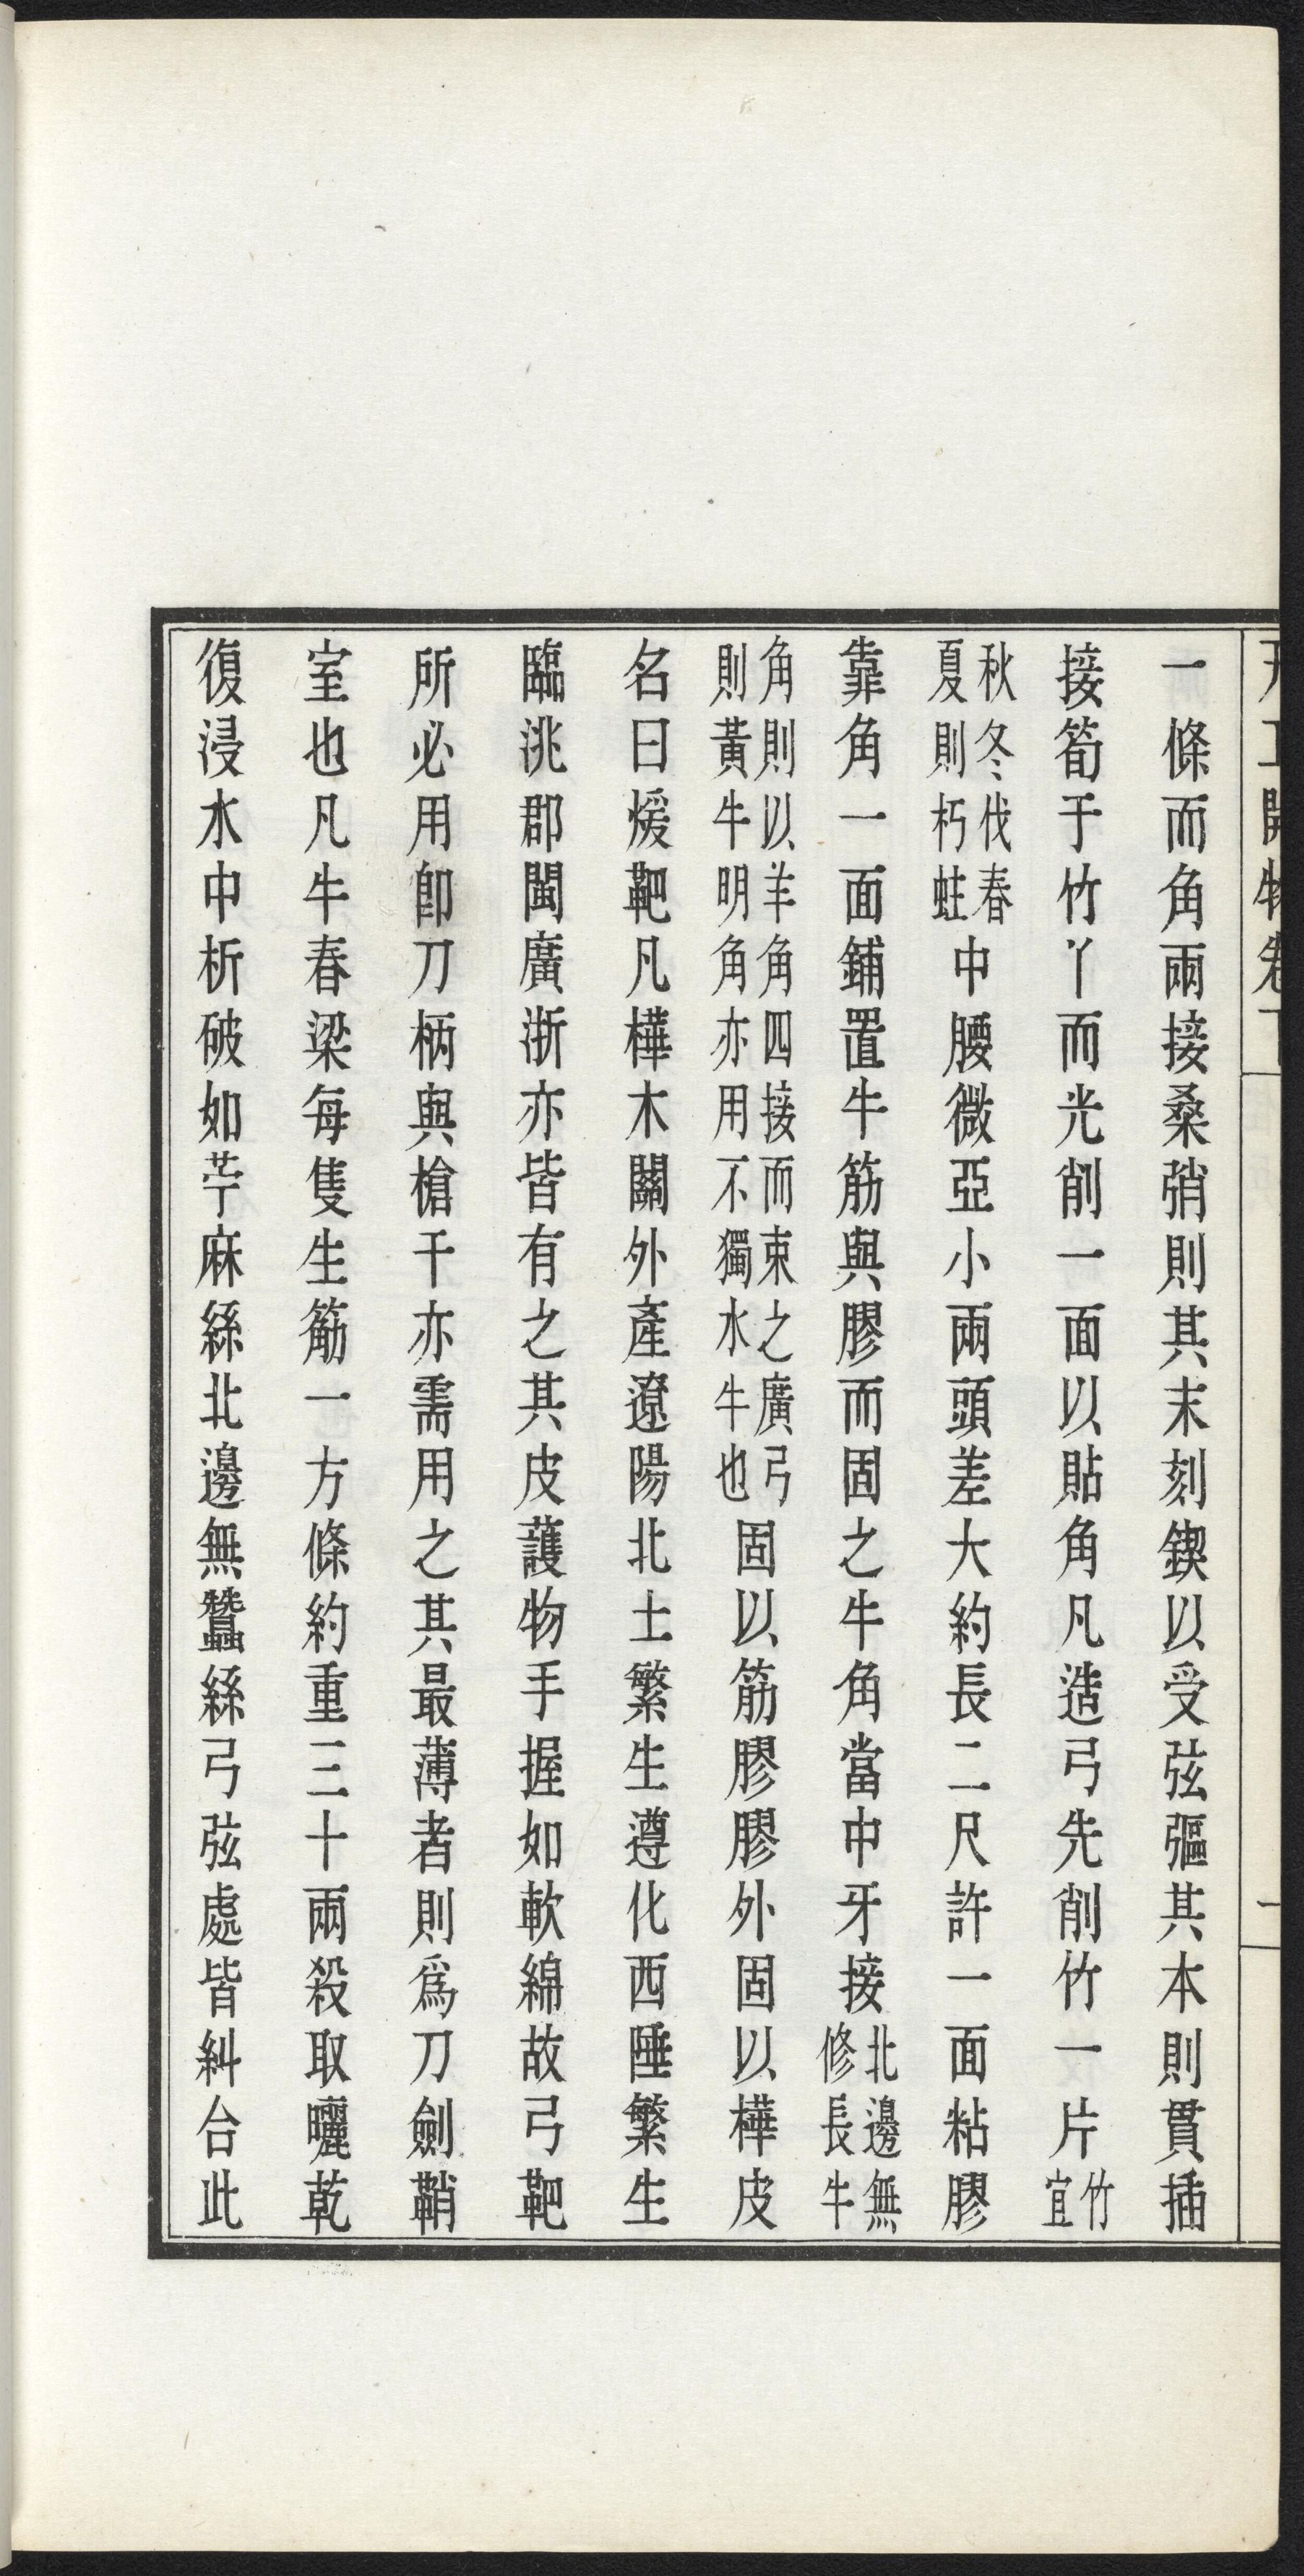 天工開物卷下
一條而角兩接桑弰則其末刻鍥以受弦彄其本則貫插
接筍于竹丫而光削一面以貼角凡造弓先削竹一片竹宜
秋冬伐春夏則朽蛀中腰微亞小兩頭差大約長二尺許一面粘膠
靠角一面鋪置牛筋與膠而固之牛角當中牙接北邊無修長牛
角則以羊角四接而束之廣弓則黃牛明角亦用不獨水牛也固以筋膠膠外固以樺皮
名曰煖靶凡樺木關外產遼陽北土繁生遵化西陲繁生
臨洮郡閩廣浙亦皆有之其皮䕶物手握如軟綿故弓靶
所必用卽刀柄與槍干亦需用之其最薄者則爲刀劍鞘
室也凡牛春梁每隻生筋一方條約重三十兩殺取曬乾
復浸水中析破如苧麻絲北邊無蠶絲弓弦處皆糾合此